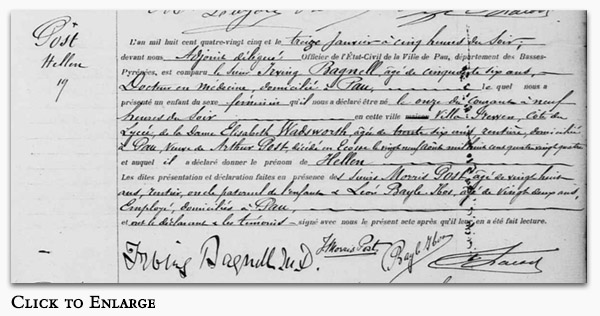 Post
Hellen
17
L'an mil huit cent quatre-vingt cinq et le treize janvier à cinq heures du soir,
devant nous Adjoint délégué Officier de l'État-Civil de la Ville de Pau, département des Basses-
Pyrénées, est comparu le sieur Irving Bagnell, âgé de cinquante six ans,
Docteur en médecine, domicilié à Pau, lequel nous a
présenté un enfant du sexe féminin qu'il nous a déclaré être né le onze du courant à neuf
heures du soir en cette ville Villa Côte du
Lycée, de la Dame Elisabeth Wadsworth, âgée de trente six ans, rentière, domiciliée
à Pau, Veuve de Arthur Post, décédé en Ecosse le vingt neuf août mil huit cent quatre vingt quatre
et auquel il a déclaré donner le prénom de Hellen
Les dites présentation et déclaration faites en présence des sieurs Morris Post, âgé de vingt huit
ans, rentier, oncle paternel de l'enfant & Léon Bayle Ibos, âgé de vingt deux ans,
Employé, domiciliés à Pau
et ont le déclarant & les témoins signé avec nous le présent acte après qu'il leur en a été fait lecture.
Irving Bagnell M.D. J. Morris Post Bayle Ibos
Click to Enlarge